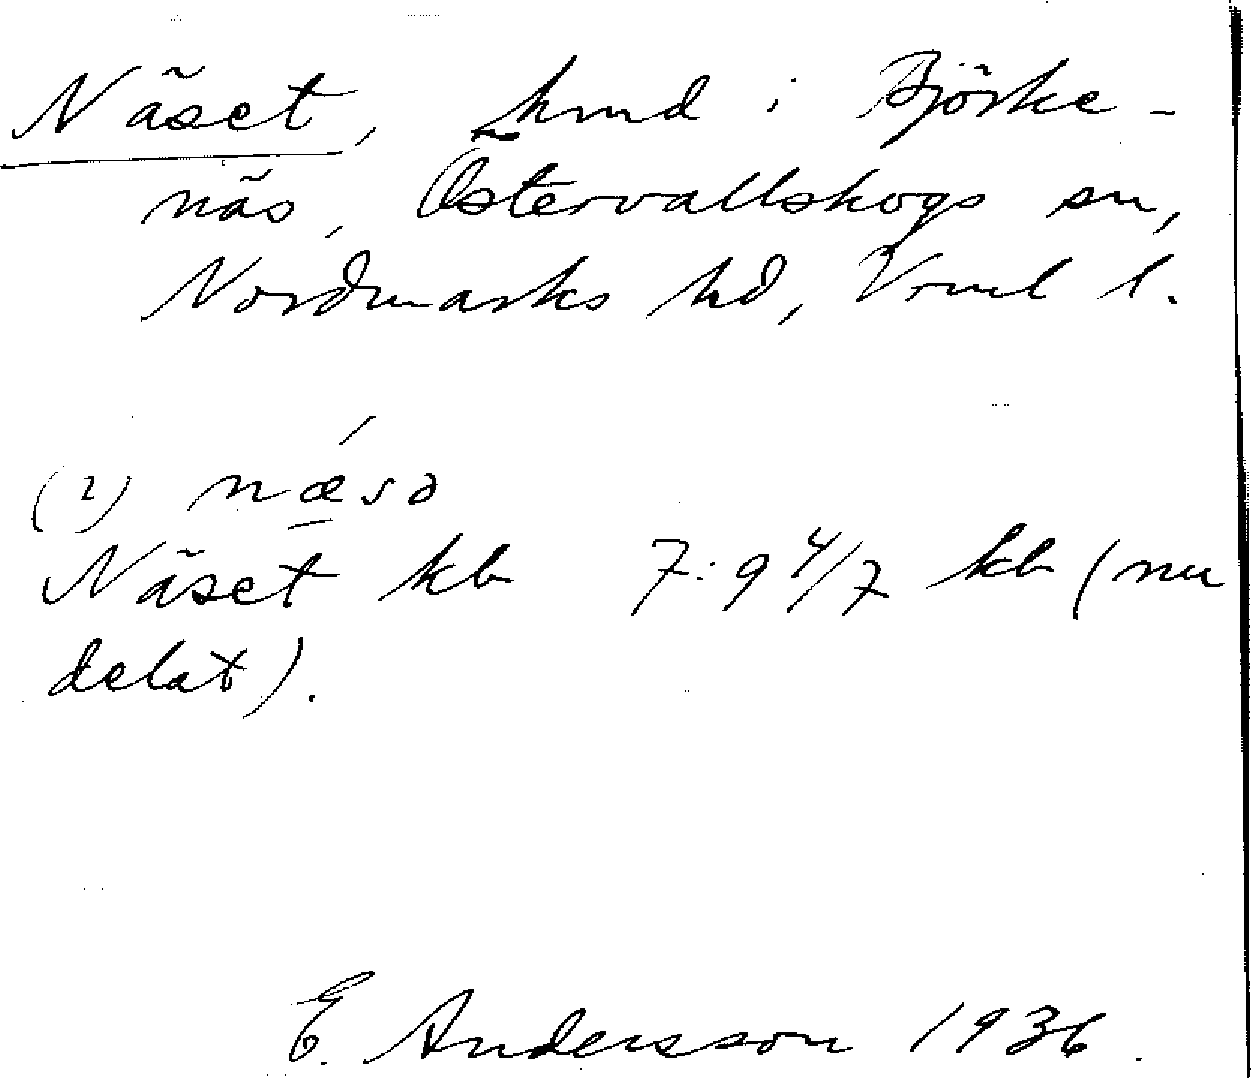 Näset, hmd i Björke-
näs, Östervallskogs sn,
Nordmarks hd, Vrml l.
(2) næsə
Näset kb 7:9 4/7 kb (nu
delat).
E. Andersson 1936.